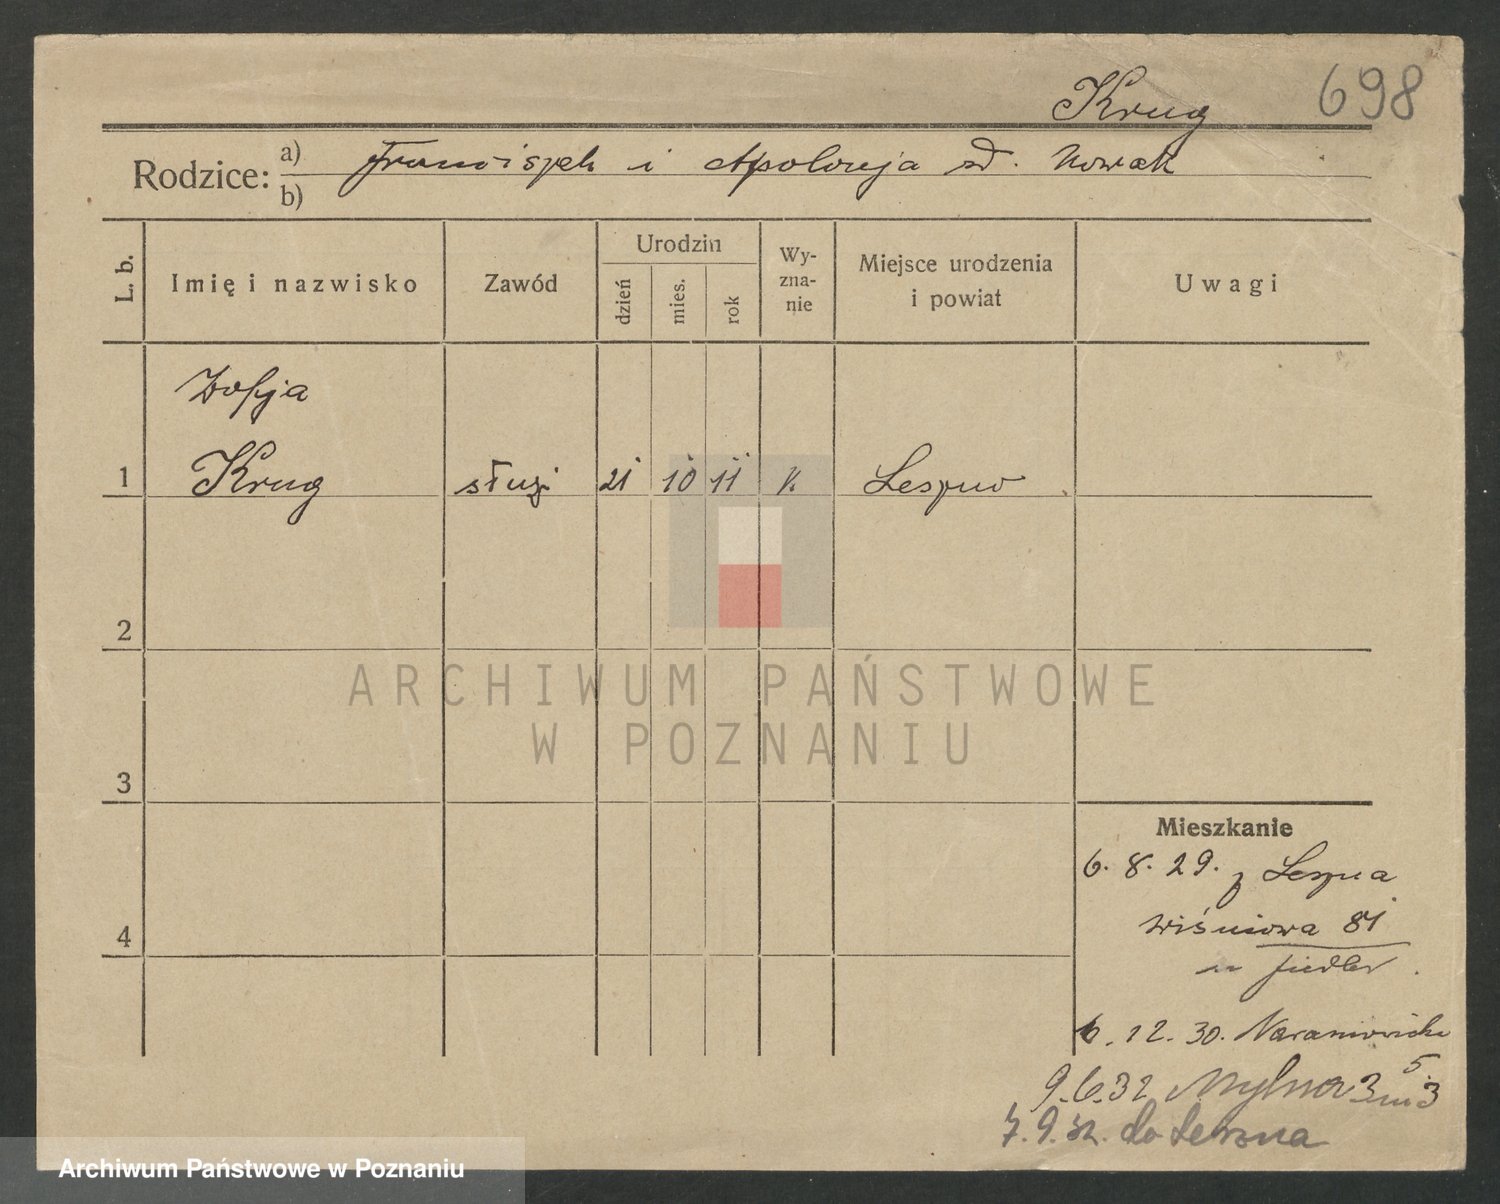 698
Krug
Rodzice: a) Franciszek i Apolonja zd. Nowak
b)
L. b.
Imię i nazwisko
Zawód
Urodzin
dzień
mies.
rok
Wy-
zna-
nie
Miejsce urodzenia
i powiat
Uwagi
Zofja
1 Krug służ 21 10 11 k Leszno
2
3
4
ARCHIWUM PAŃSTWOWE
W POZNANIU
Mieszkanie
6. 8. 29. z Leszna
Wiśniowa 81
u Fiedler.
6. 12. 30. Naramowicka
5
9.6.32 Mylna 3 m 3
7.9.32. do Leszna
Archiwum Państwowe w Poznaniu